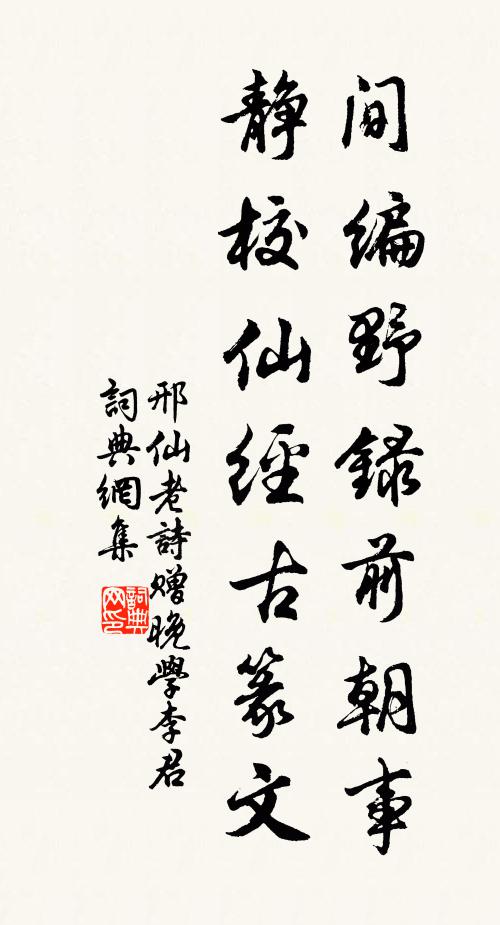 间编野録前朝事
静校仙經古篆文
邢仙老詩贈晚學李君
詞典網集
詞典
网印